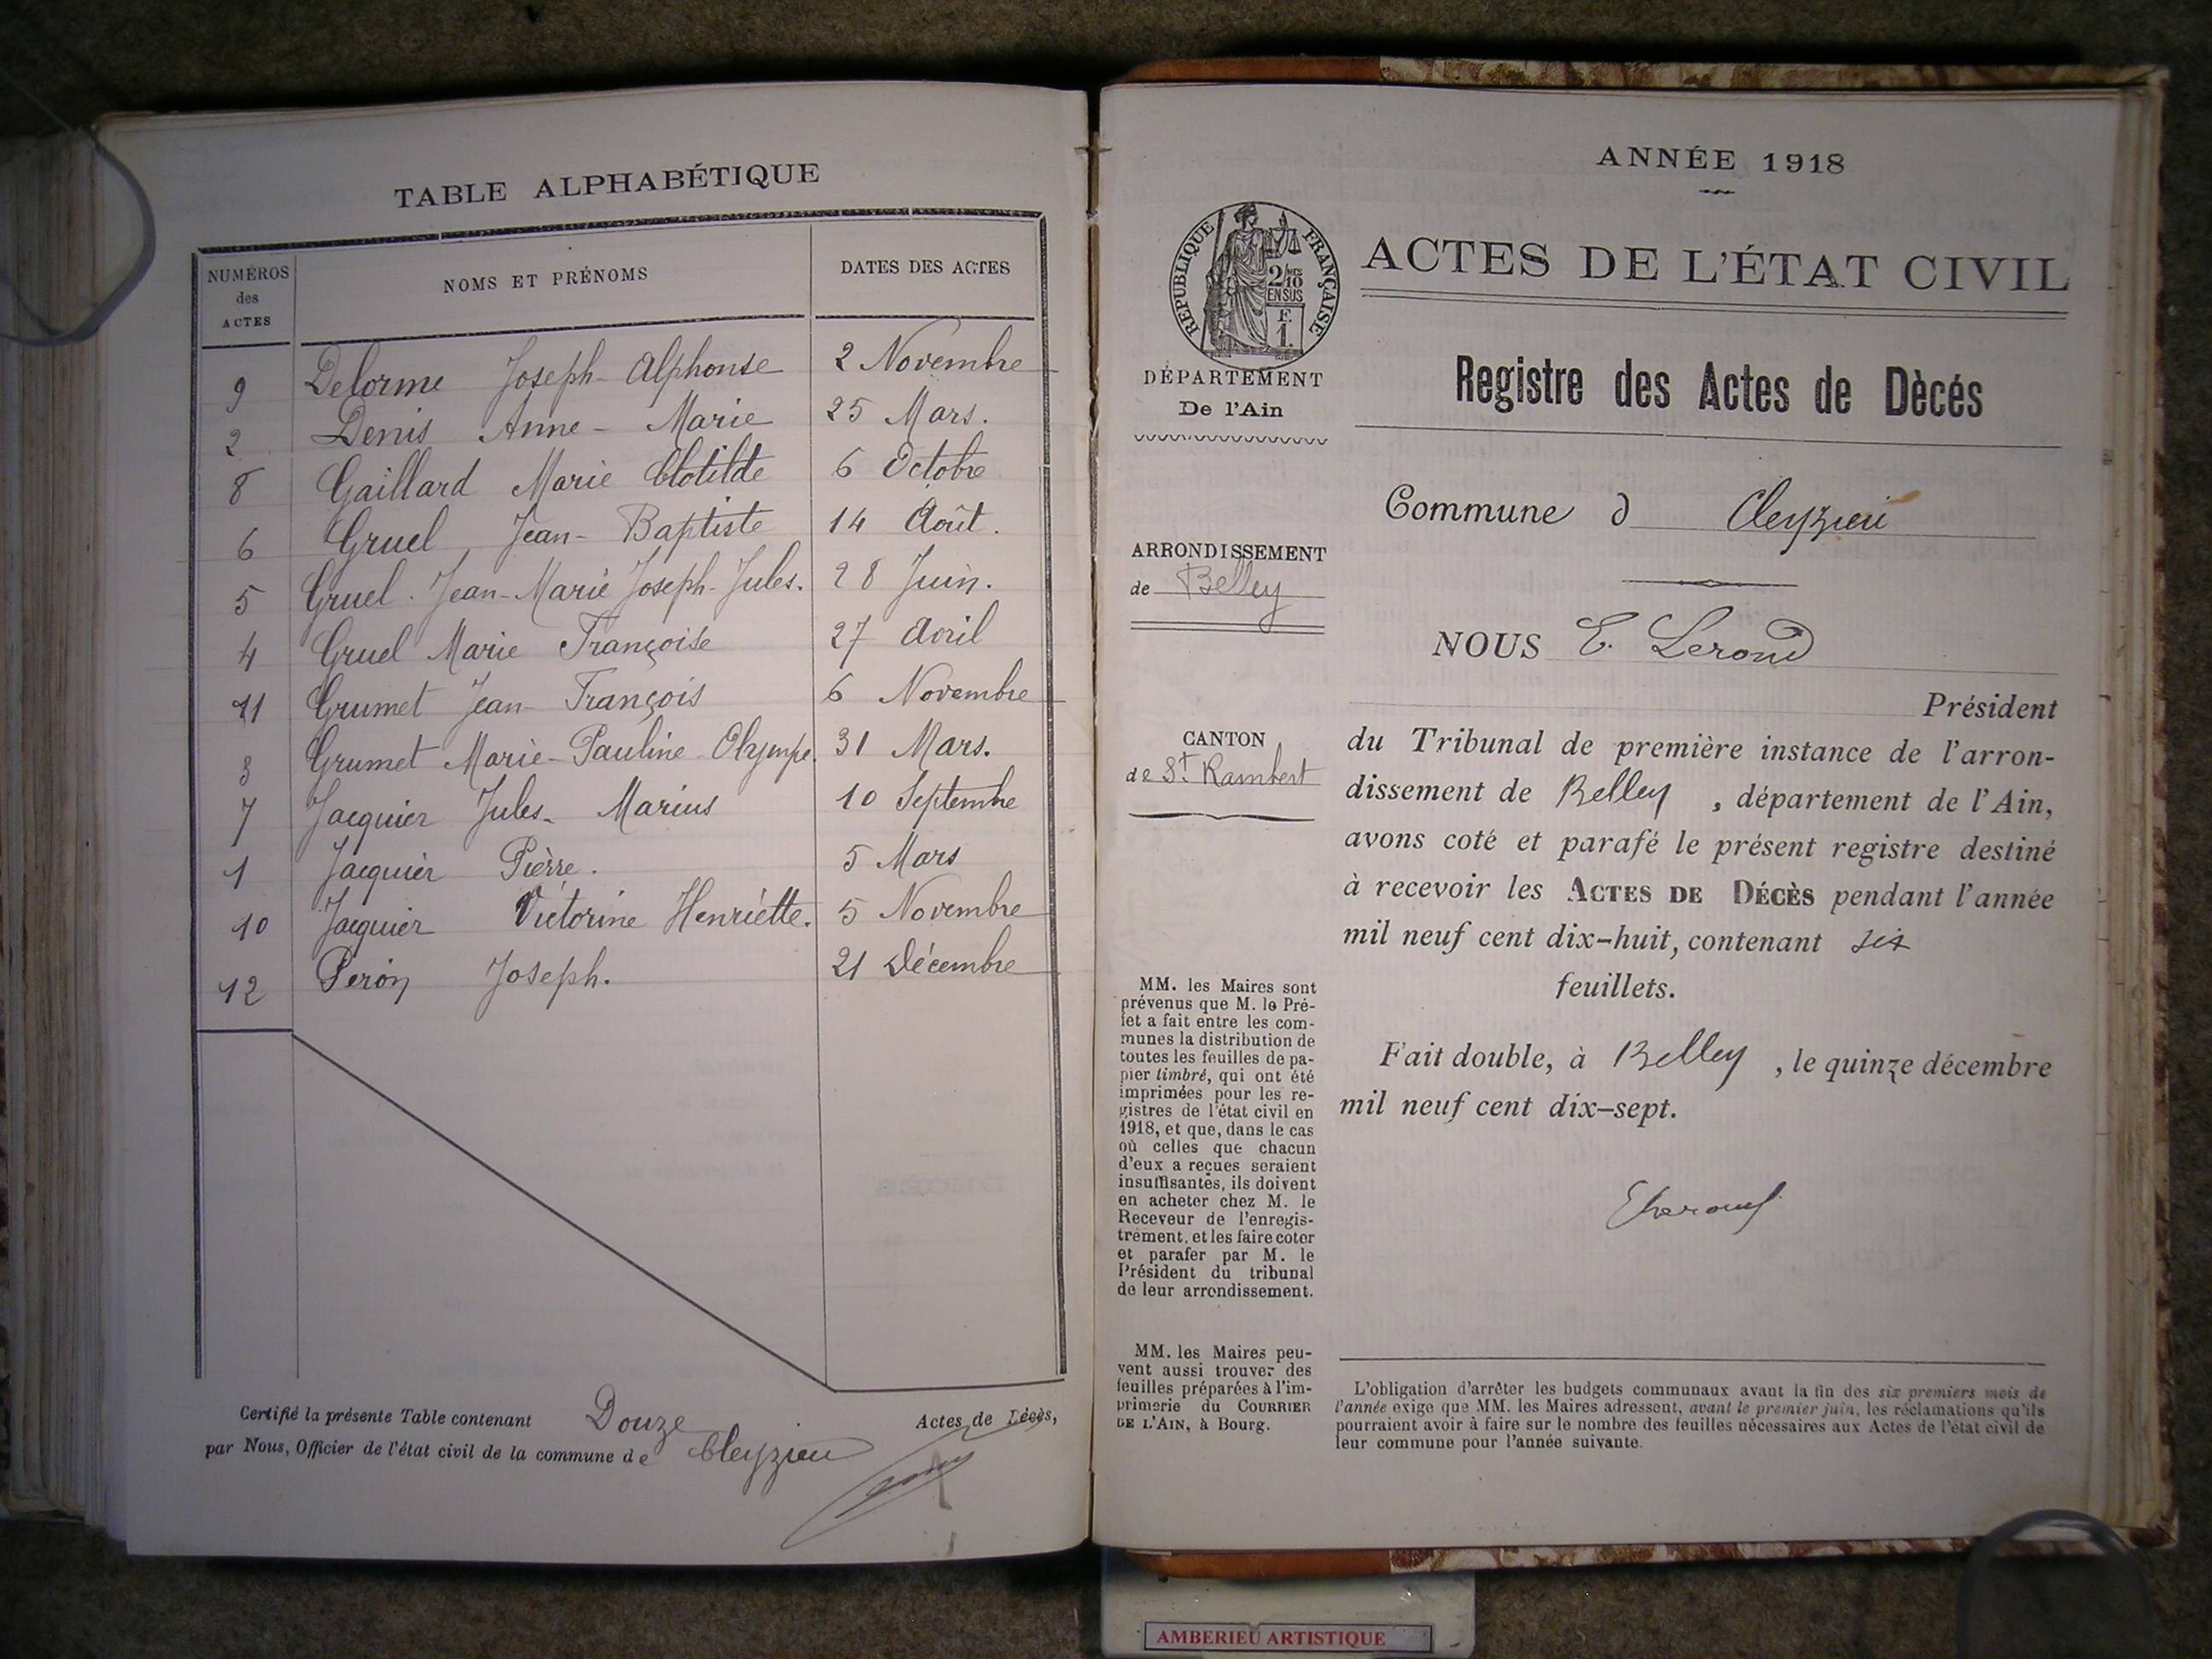 TABLE ALPHABÉTIQUE
NUMÉROS des ACTES NOMS ET PRÉNOMS DATES DES ACTES
9 Delorme Joseph-Alphonse 2 Novembre
2 Denis Anne-Marie 25 Mars.
8 Gaillard Marie Clotilde 6 Octobre
6 Gruel Jean-Baptiste 14 Août.
5 Gruel. Jean-Marie Joseph-Jules. 28 Juin.
4 Gruel Marie Françoise 27 Avril
11 Grumet Jean François 6 Novembre
3 Grumet Marie-Pauline-Olympe. 31 Mars.
7 Jacquier Jules-Marius 10 Septembre
1 Jacquier Pierre. 5 Mars
10 Jacquier Victorine Henriette. 5 Novembre
12 Peron Joseph. 21 Décembre
Certifié la présente Table contenant Douze Actes de Décès,
par Nous, Officier de l'état civil de la commune de Cleyzieu
ANNÉE 1918
RÉPUBLIQUE FRANÇAISE
2/10 MES
EN SUS
F.
1.
ACTES DE L'ÉTAT CIVIL
DÉPARTEMENT
De l'Ain
Registre des Actes de Dècés
Commune d Cleyzieu
ARRONDISSEMENT
de Belley
NOUS E. Lerond
Président
CANTON
de St. Rambert
du Tribunal de première instance de l'arron-
dissement de Belley, département de l'Ain,
avons coté et parafé le présent registre destiné
à recevoir les ACTES DE DÉCÈS pendant l'année
mil neuf cent dix-huit, contenant six
feuillets.
Fait double, à Belley, le quinze décembre
mil neuf cent dix-sept.
ELerond
MM. les Maires sont
prévenus que M. le Pré-
fet a fait entre les com-
munes la distribution de
toutes les feuilles de pa-
pier timbré, qui ont été
imprimées pour les re-
gistres de l'état civil en
1918, et que, dans le cas
où celles que chacun
d'eux a reçues seraient
insuffisantes, ils doivent
en acheter chez M. le
Receveur de l'enregis-
trement, et les faire coter
et parafer par M. le
Président du tribunal
de leur arrondissement.
MM. les Maires peu-
vent aussi trouver des
feuilles préparées à l'im-
primerie du COURRIER
DE L'AIN, à Bourg.
L'obligation d'arrêter les budgets communaux avant la fin des six premiers mois de
l'année exige que MM. les Maires adressent, avant le premier juin, les réclamations qu'ils
pourraient avoir à faire sur le nombre des feuilles nécessaires aux Actes de l'état civil de
leur commune pour l'année suivante.
AMBERIEU ARTISTIQUE